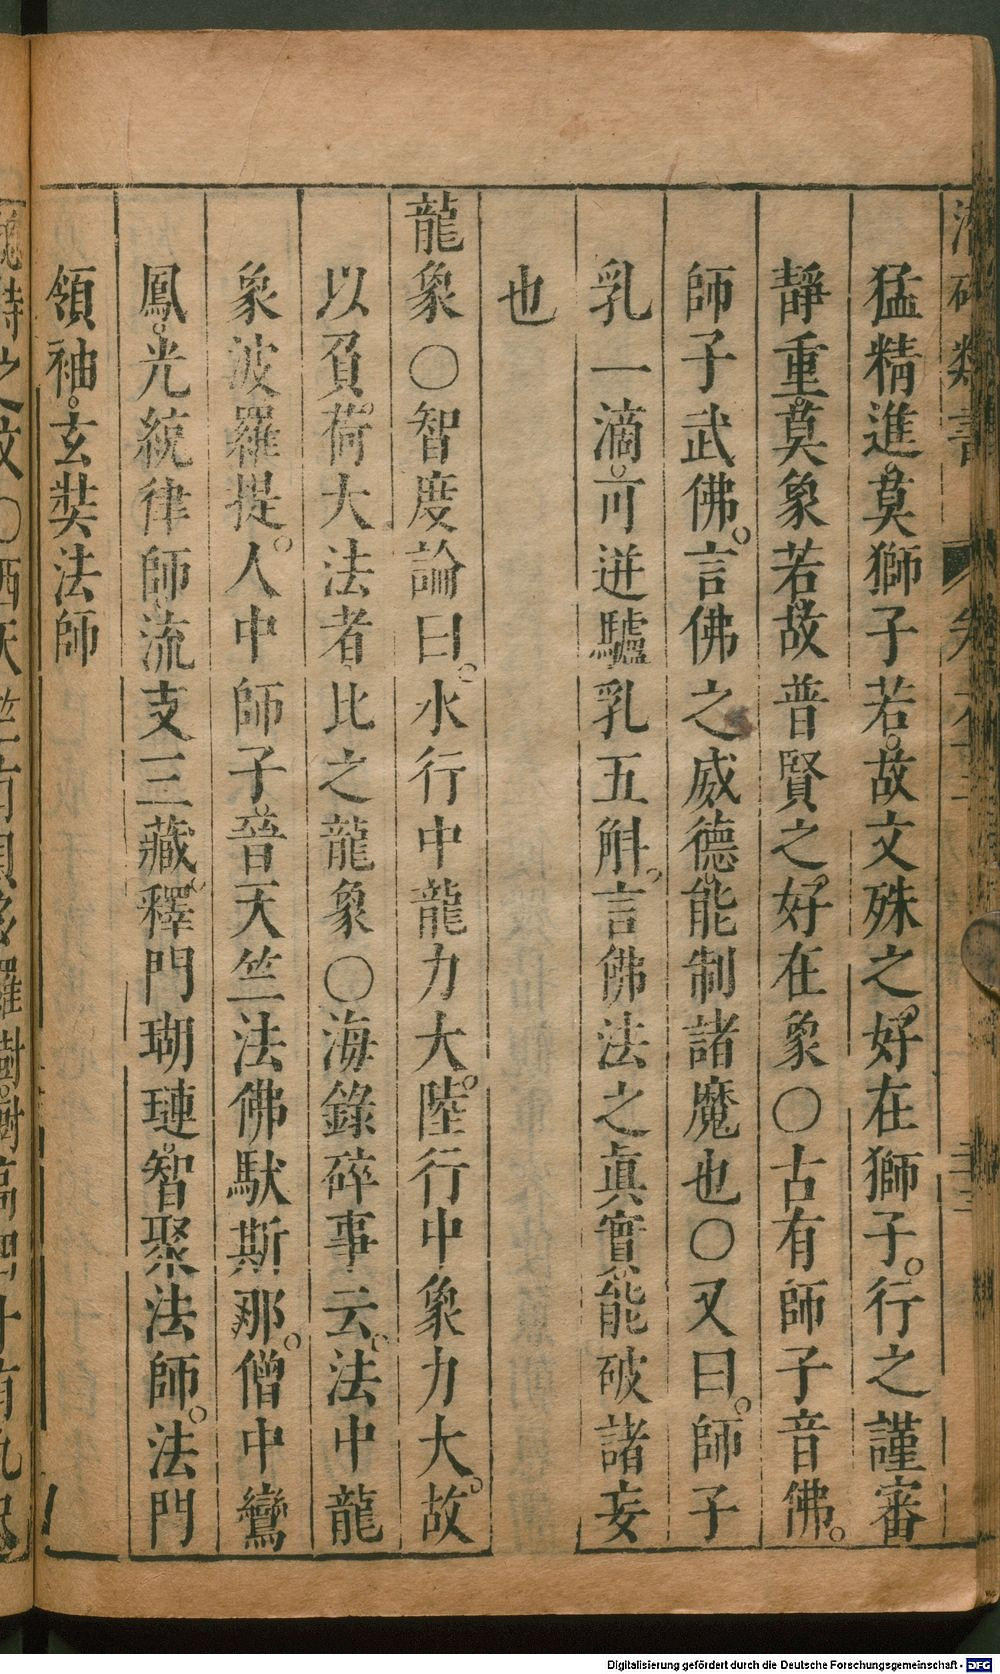 猛精進莫獅子若故文殊之好在獅子行之謹審
靜重莫象若故普賢之好在象○古有師子音佛
師子武佛言佛之威德能制諸魔也○又曰師子
乳一滴可迸驢乳五斛言佛法之眞實能破諸妄
也
龍象○智度論曰水行中龍力大陸行中象力大故
以負荷大法者比之龍象○海錄碎事云法中龍
象波羅提人中師子音天竺法佛馱斯那僧中鸞
鳳光統律師流支三藏釋門瑚璉智聚法師法門
領袖玄奘法師
Digitalisierung gefördert durch die Deutsche Forschungsgemeinschaft - DFG